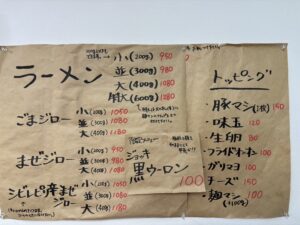 ラーメン
小(200g) 950
並(300g) 980
大(400g) 1080
特大(600g) 1280
ごまジロー
小(200g) 1050
並(300g) 1080
大(400g) 1180
まぜジロー
小(200g) 950
並(300g) 980
大(400g) 1080
シビレビ産まぜジロー
小(200g) 1050
並(300g) 1080
大(400g) 1180
ジョッキ
黒ウーロン
100
トッピング
・豚マシ(2枚) 150
・味玉 120
・生卵 80
・フライドオニオン 100
・ガリマヨ 100
・チーズ 150
・麺マシ 100
(+100g)